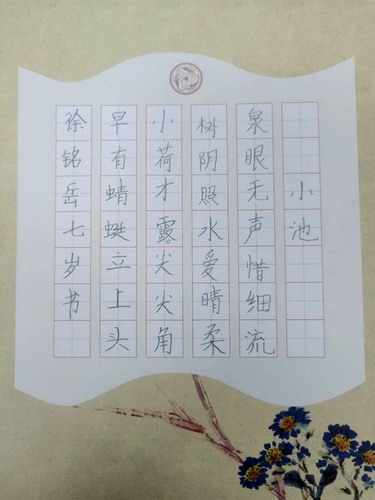 小池
泉眼无声惜细流
树阴照水爱晴柔
小荷才露尖尖角
早有蜻蜓立上头
徐铭岳七岁书